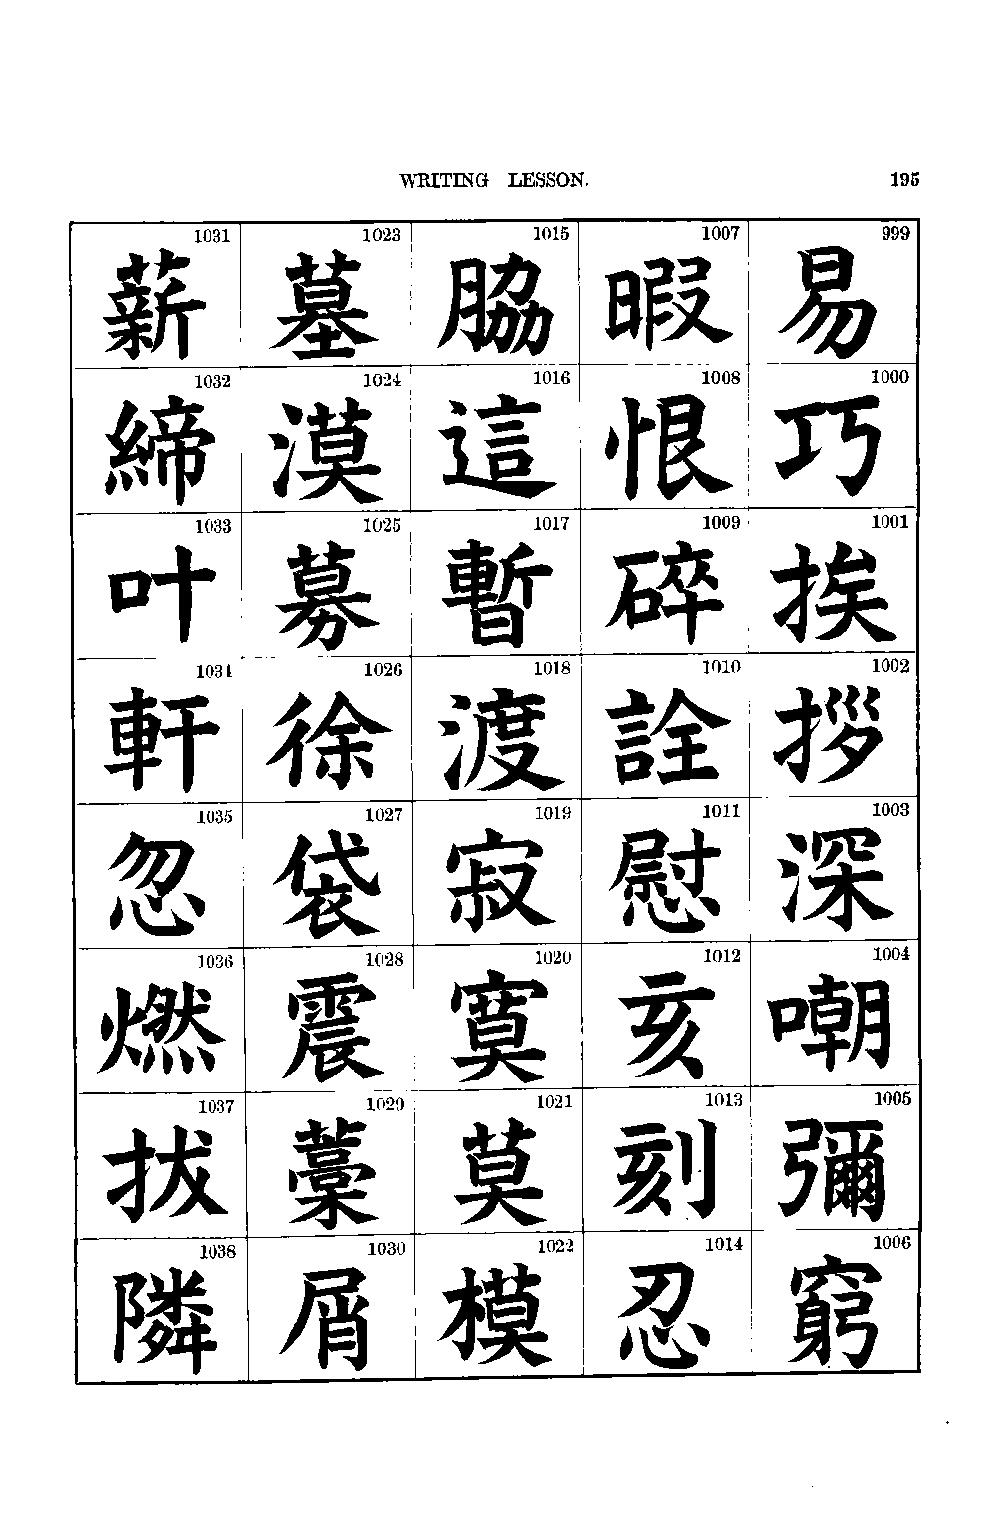 WRITING LESSON.
195
999
易
1000
巧
1001
挨
1002
拶
1003
深
1004
嘲
1005
彌
1006
窮
1007
暇
1008
恨
1009
碎
1010
詮
1011
慰
1012
亥
1013
刻
1014
忍
1015
脇
1016
這
1017
暫
1018
渡
1019
寂
1020
寞
1021
莫
1022
模
1023
墓
1024
漠
1025
募
1026
徐
1027
袋
1028
震
1029
藁
1030
屑
1031
薪
1032
締
1033
叶
1034
軒
1035
忽
1036
燃
1037
拔
1038
隣